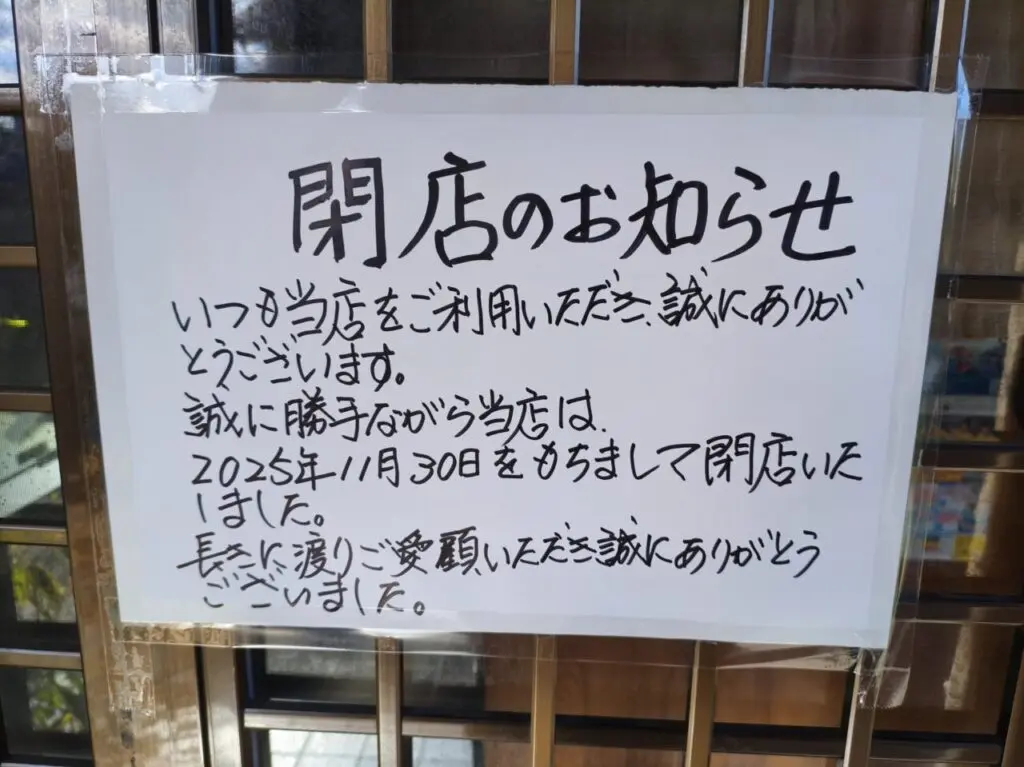 閉店のお知らせ
いつも当店をご利用いただき、誠にありが
とうございます。
誠に勝手ながら当店は、
2025年11月30日をもちまして閉店いた
しました。
長きに渡りご愛顧いただき誠にありがとう
ございました。